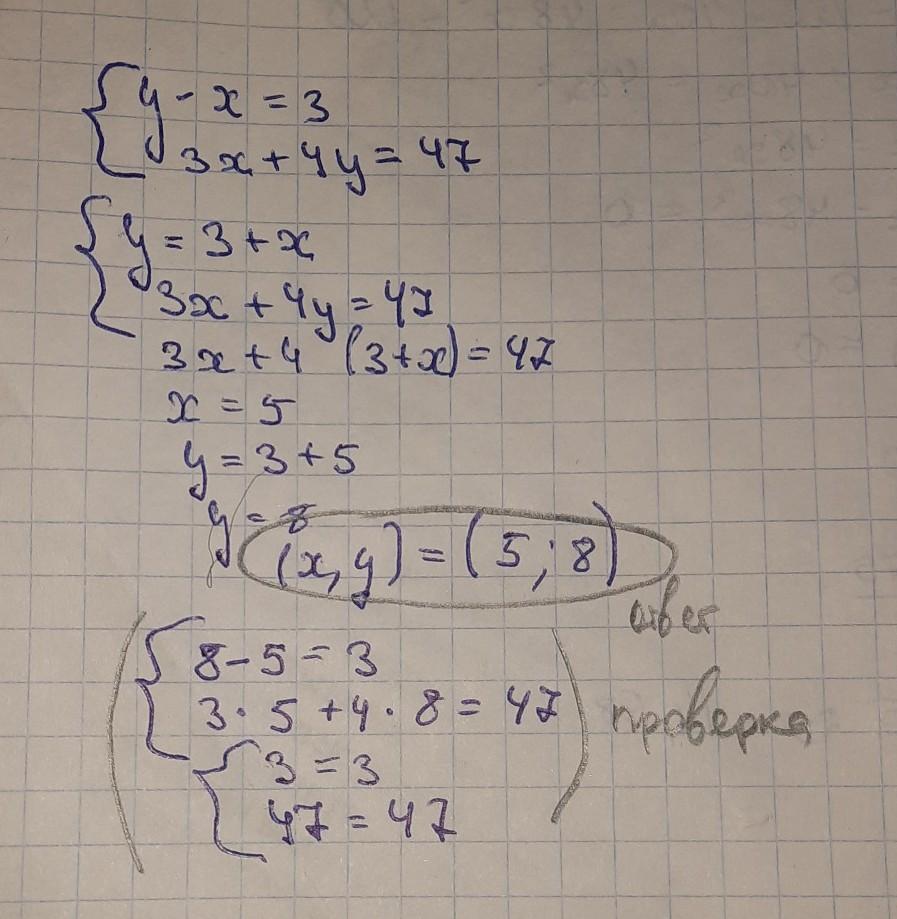 y - x = 3
3x + 4y = 47
y = 3 + x
3x + 4y = 47
3x + 4 (3+x) = 47
x = 5
y = 3 + 5
y = 8
(x, y) = (5; 8)
ответ
8 - 5 = 3
3 · 5 + 4 · 8 = 47
проверка
3 = 3
47 = 47